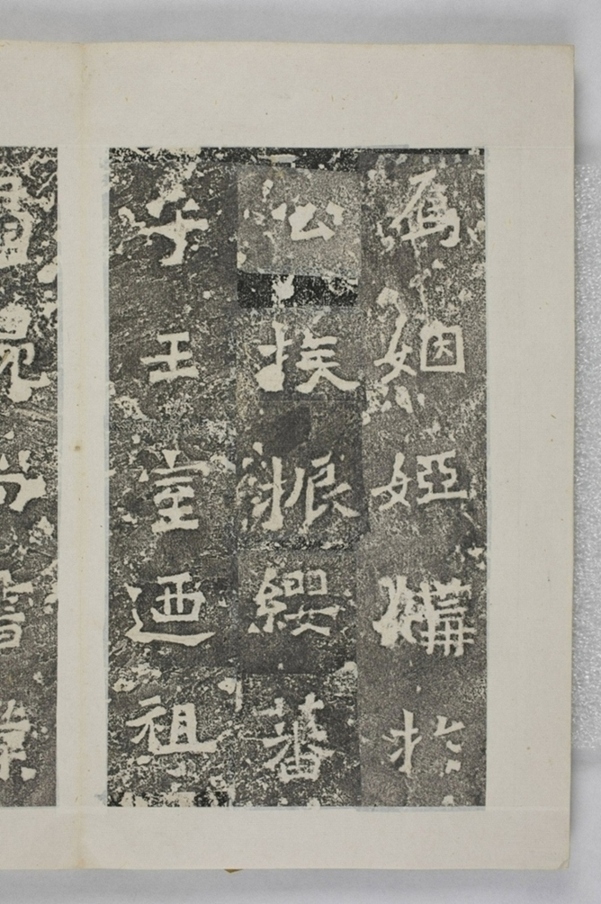 為姻婭媾於
公族振纓蕃
乎王室迺祖